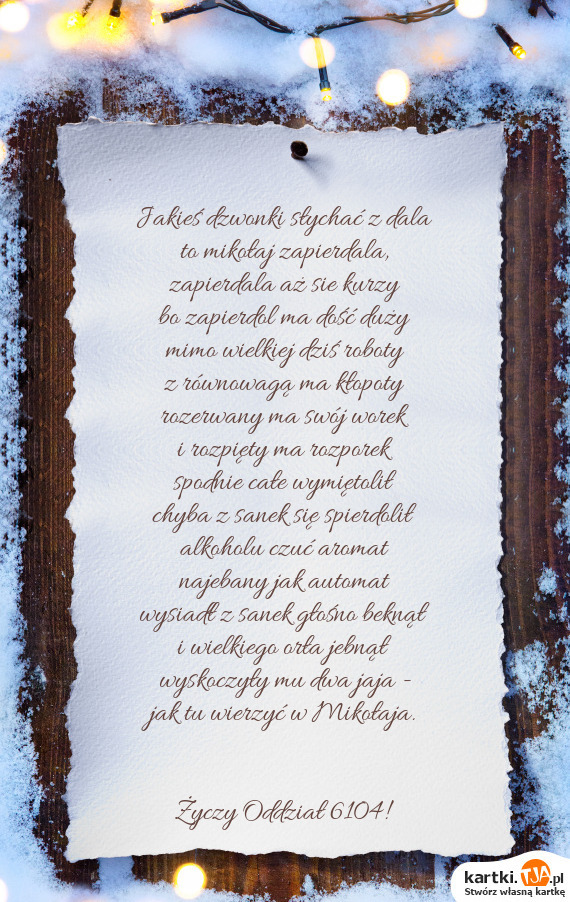 Jakieś dzwonki słychać z dala
to mikołaj zapierdala,
zapierdala aż sie kurzy
bo zapierdol ma dość duży
mimo wielkiej dziś roboty
z równowagą ma kłopoty
rozerwany ma swój worek
i rozpięty ma rozporek
spodnie całe wymiętolił
chyba z sanek się spierdolił
alkoholu czuć aromat
najebany jak automat
wysiadł z sanek głośno beknął
i wielkiego orła jebnął
wyskoczyły mu dwa jaja -
jak tu wierzyć w Mikołaja.
Życzy Oddział 6104!
kartki.TJA.pl
Stwórz własną kartkę